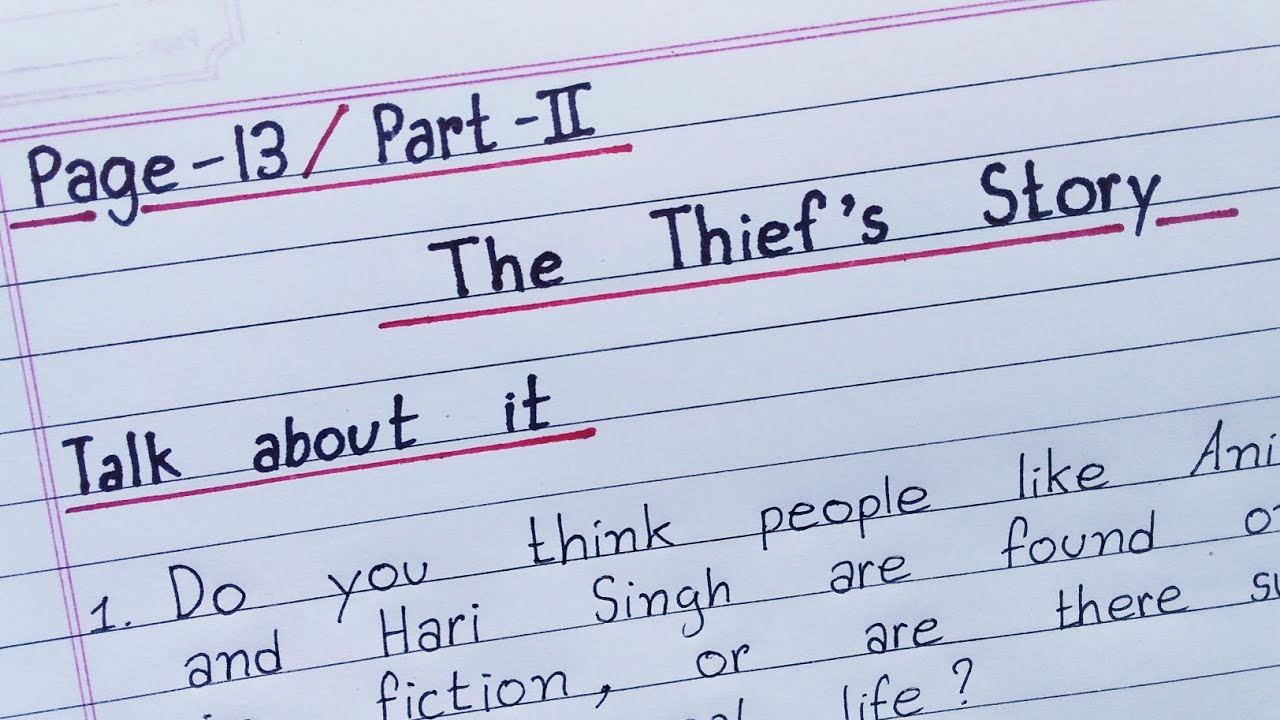 Page-13 / Part-II
The Thief's Story
Talk about it
1. Do you think people like Ani
and Hari Singh are found
fiction, or are there su
life?